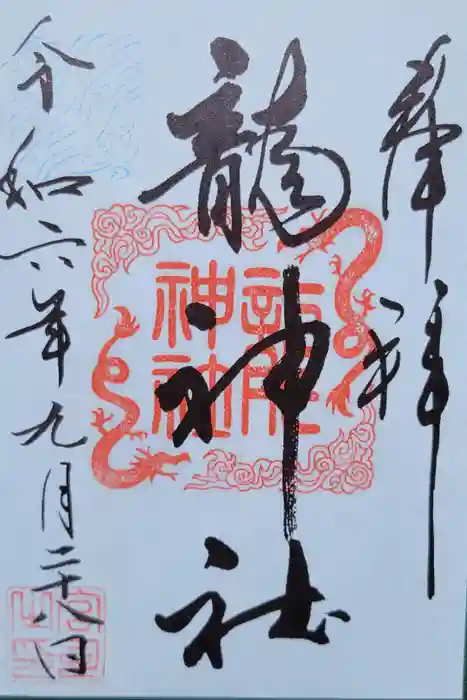 奉拝
龍神社
神社
令和六年九月二十八日
宮司
之印